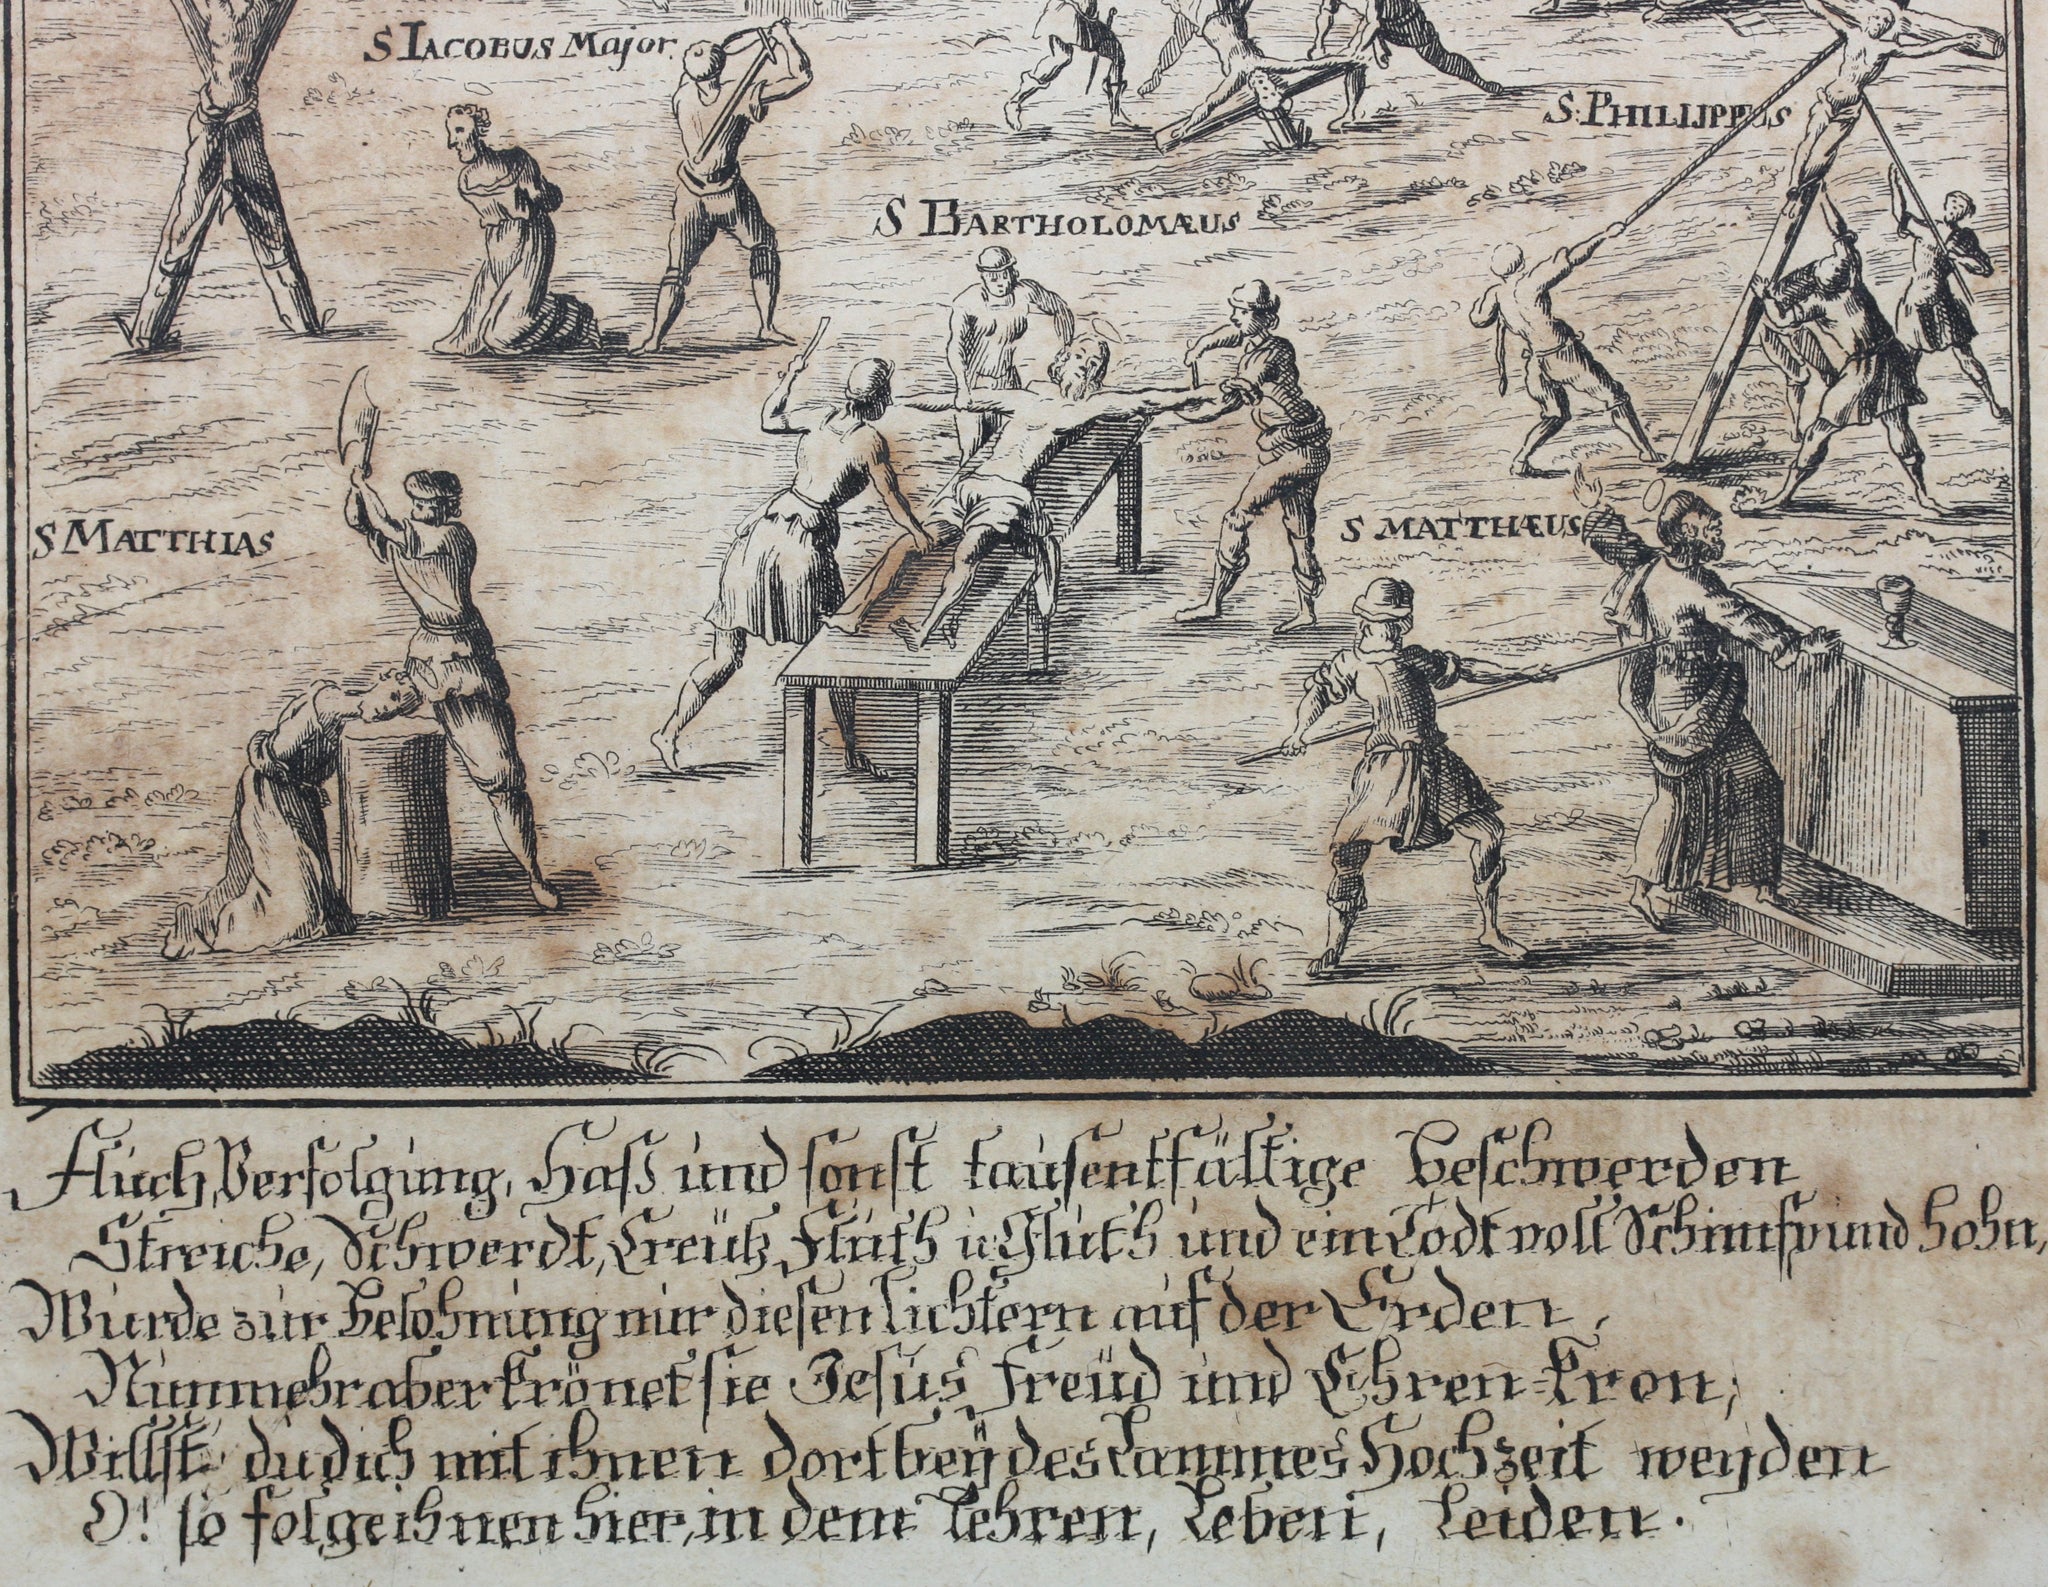 S IACOBUS Major.
S. PHILIJPPUS
S BARTHOLOMÆUS
S MATTHIAS
S MATTHÆUS
Fluch, Verfolgung, Haß und sonst tausentfältige Beschwerden
Streiche, Schwerdt, Creütz, Fluth u: Gluth und ein Todt voll Schimpf und Hohn,
Wurde zur Belohnung nur diesen Lichtern auf der Erden,
Nunmehr aber krönet sie Jesus Freüd und Ehren-Kron;
Willst du dich mit ihnen dort beÿ des Lammes Hochzeit weyden
O! so folge ihnen hier, in dem Lehren, Leben, Leiden.